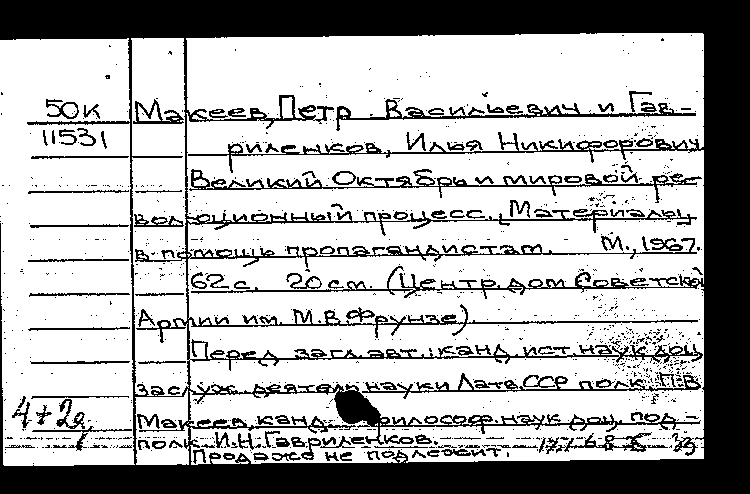 50К
11531
Макеев, Петр Васильевич и Гав-
риленков, Илья Никифорович
Великий Октябрь и мировой ре-
волюционный процесс. [Материалы
в помощь пропагандистам. М., 1967.
62 с. 20 см. (Центр. дом Советской
Армии им. М.В.Фрунзе).
Перед загл. авт.: канд. ист. наук доц.
заслуж. деятель науки Латв. ССР полк. П.В.
Макеев, канд. философ. наук доц. под-
полк. И.Н.Гавриленков.
Продаже не подлежит.
4+2д